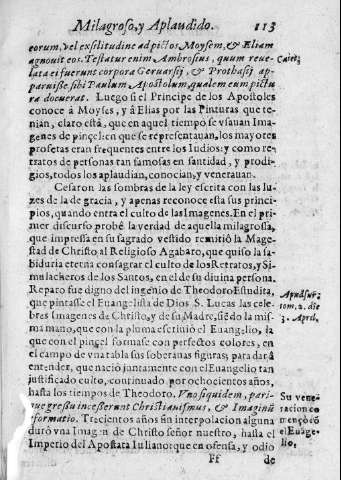 Milagroso, y Aplaudido. 113
eorum, vel ex similitudine ad pictos Moysem, & Eliam
agnouit eos. Testatur enim Ambrosius, quum reue-
lata ei fuerunt corpora Geruasij, & Prothasij ap-
paruisse sibi Paulum Apostolum, qualem eum pictu
ra docuerat. Luego si el Principe de los Apostoles
conoce à Moyses, y à Elias por las Pinturas que te-
nian, claro està, que en aquel tiempo se vsauan Ima-
genes de pinçel: en que se representauan, los mayores
profetas eran frequentes entre los Iudios: y como re-
tratos de personas tan famosas en santidad, y prodi-
gios, todos los aplaudian, conocian, y venerauan.
Cesaron las sombras de la ley escrita con las lu-
zes de la de gracia, y apenas reconoce esta sus princi-
pios, quando entra el culto de las Imagenes. En el pri
mer discurso probè la verdad de aquella milagrosa,
que impressa en su sagrado vestido remitiò la Mage-
stad de Christo al Religioso Agabaro, que quiso la sa-
biduria eterna consagrar el culto de los Retratos, y Si-
mulacheros de los Santos, en el de su diuina persona.
Reparo fue digno del ingenio de Theodoro Estudita,
que pintasse el Euangelista de Dios S. Lucas las cele-
bres Imagenes de Christo, y de su Madre, siẽdo la mis-
ma mano, que con la pluma escriuiò el Euangelio, la
que con el pinçel formase con perfectos colores, en
el campo de vna tabla sus soberanas figuras, para dar à
entender, que naciò juntamente con el Euangelio tan
justificado culto, continuado por ochocientos años,
hasta los tiempos de Theodoro. Vno siquidem, pari-
que gressu incesserunt Christianismus, & Imaginũ
reformatio. Trecientos años sin interpolacion alguna
durò vna Imagen de Christo señor nuestro, hasta el
Imperio del Apostata Iuliano: que en ofensa, y odio
Ff de
Apud Sur;
tom. 2. die
3. April.
Su vene-
racion co
mençò cõ
el Euãge-
lio.